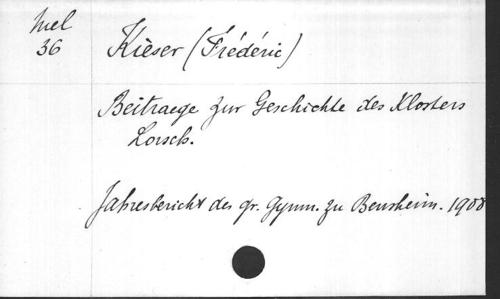 Mel
36
Kieser (Frédéric)
Beitraege zur Geschichte des Klosters
Lorsch.
Jahresbericht des gr. Gymn. zu Bensheim. 1908